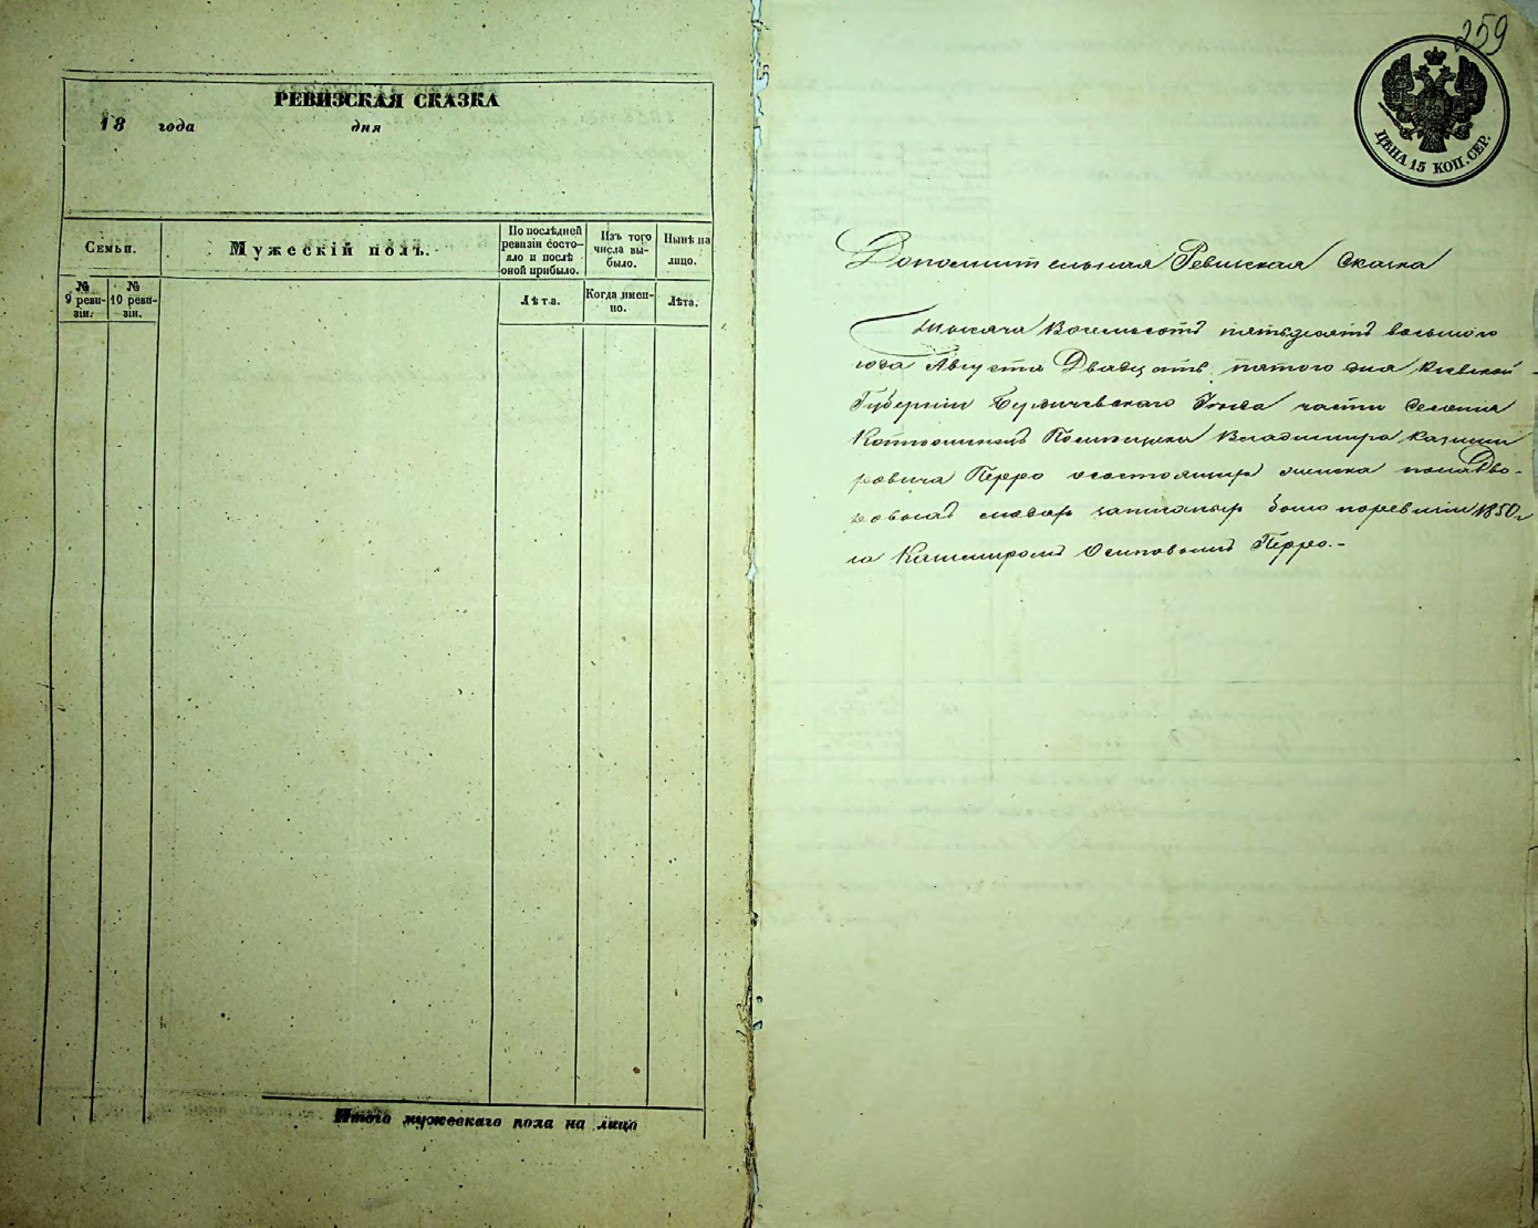 РЕВИЗСКАЯ СКАЗКА
18 года дня
Семьи.
Мужескій полъ.
По послѣдней
ревизіи состо-
яло и послѣ
оной прибыло.
Изъ того
числа вы-
было.
Нынѣ на
лицо.
№
9 реви-
зіи.
№
10 реви-
зіи.
Лѣта.
Когда имен-
но.
Лѣта.
Итого мужескаго пола на лицо
259
ЦѢНА 15 КОП. СЕР.
Дополнительная Ревизская Сказка
Тысяча Восемьсотъ пятьдесятъ восьмого
года Августа Двадцать пятого дня Кіевской
Губерніи Бердичевскаго Уѣзда части селенія
Помѣщика Владимира Казими
ровича Перро о состоящихъ пола Дво-
ровыхъ людяхъ записаныхъ было по ревизіи 1850
го Казимиромъ Осиповымъ Перро.-